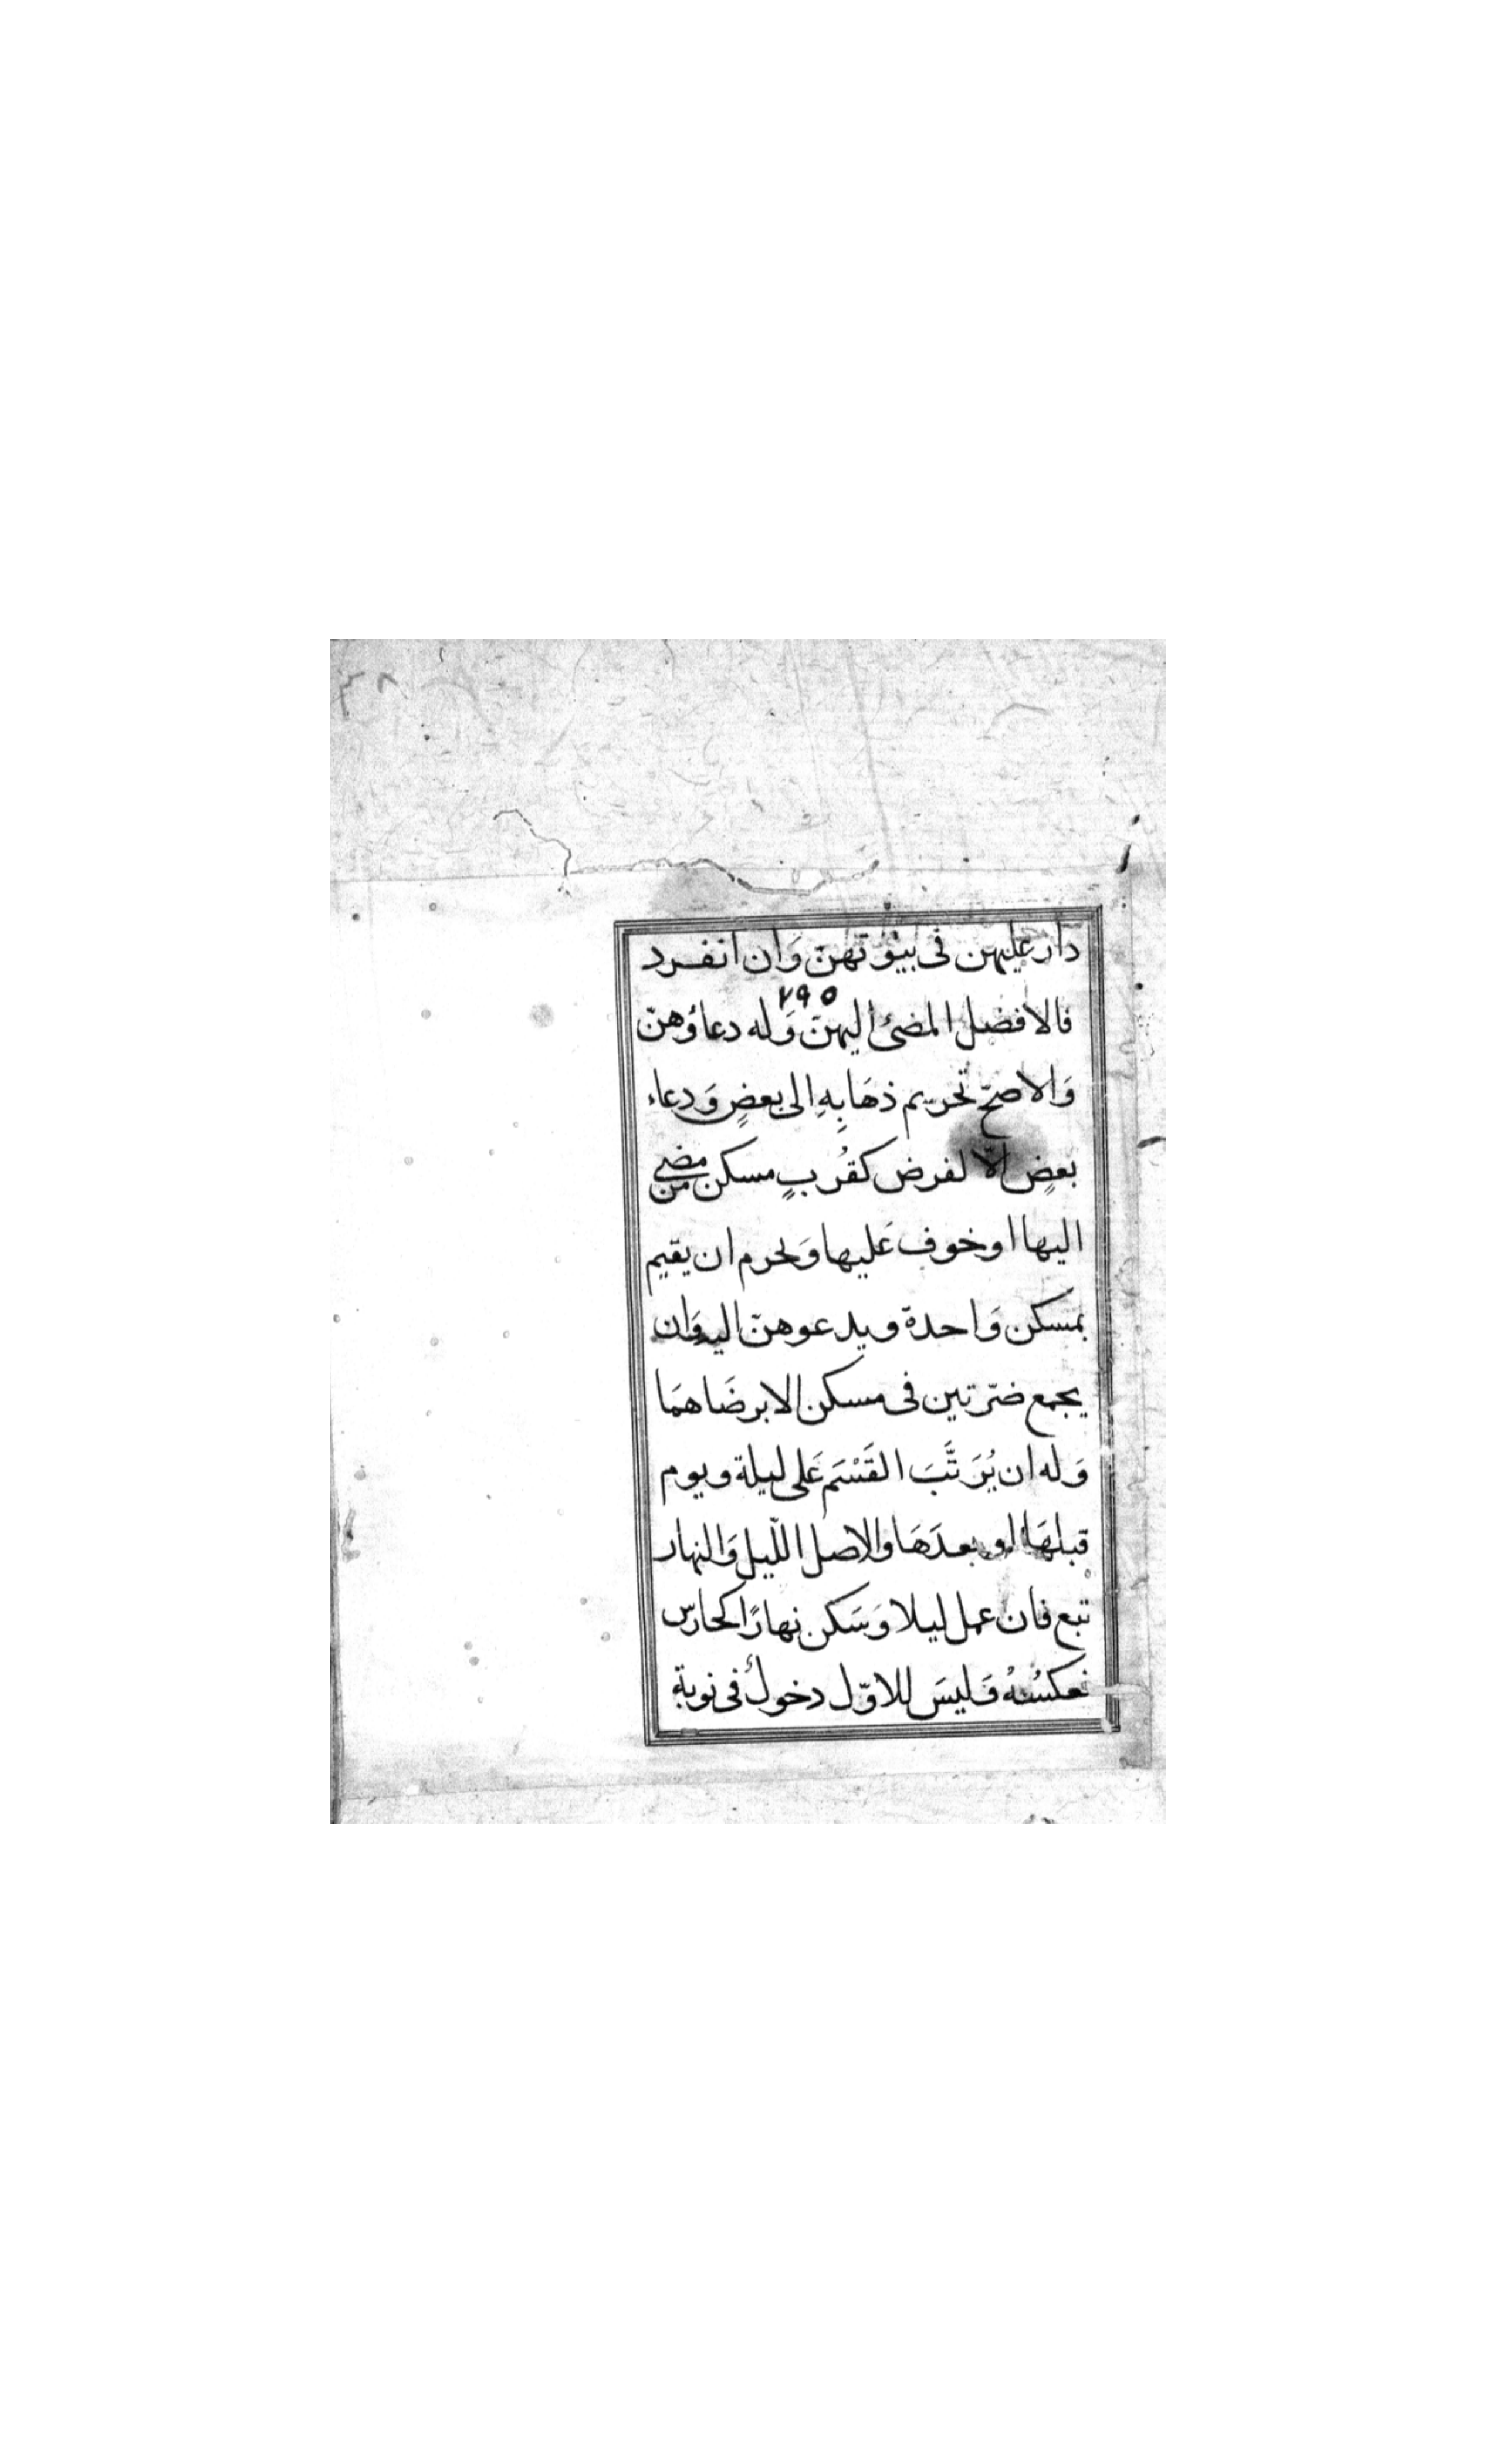 دار عليهن فى بيوتهنّ وَان انفرد
٧٩٥
فالافضل المضىّ اليهنّ وَله دعاؤهنّ
وَالاصحّ تحريم ذهَابِهِ الى بعضٍ وَدعاء
بعضٍ الّا لفرض كقُربِ مسكن من مضى
اليها اوخوف عَليها وَيحرم ان يقيم
بمسكن وَاحدة ويدعوهنّ اليه وَان
يجمع ضرّتين فى مسكن الا برضَاهمَا
وَله ان يُرَتّبَ القَسْمَ عَلى ليلة ويوم
قبلهَا او بعدَهَا والاصل اللّيل وَالنهار
تبع فان عمل ليلا وَسَكن نهارًا كحارس
فعكسُهُ وَليسَ للاوّل دخولٌ فى نوبةِ